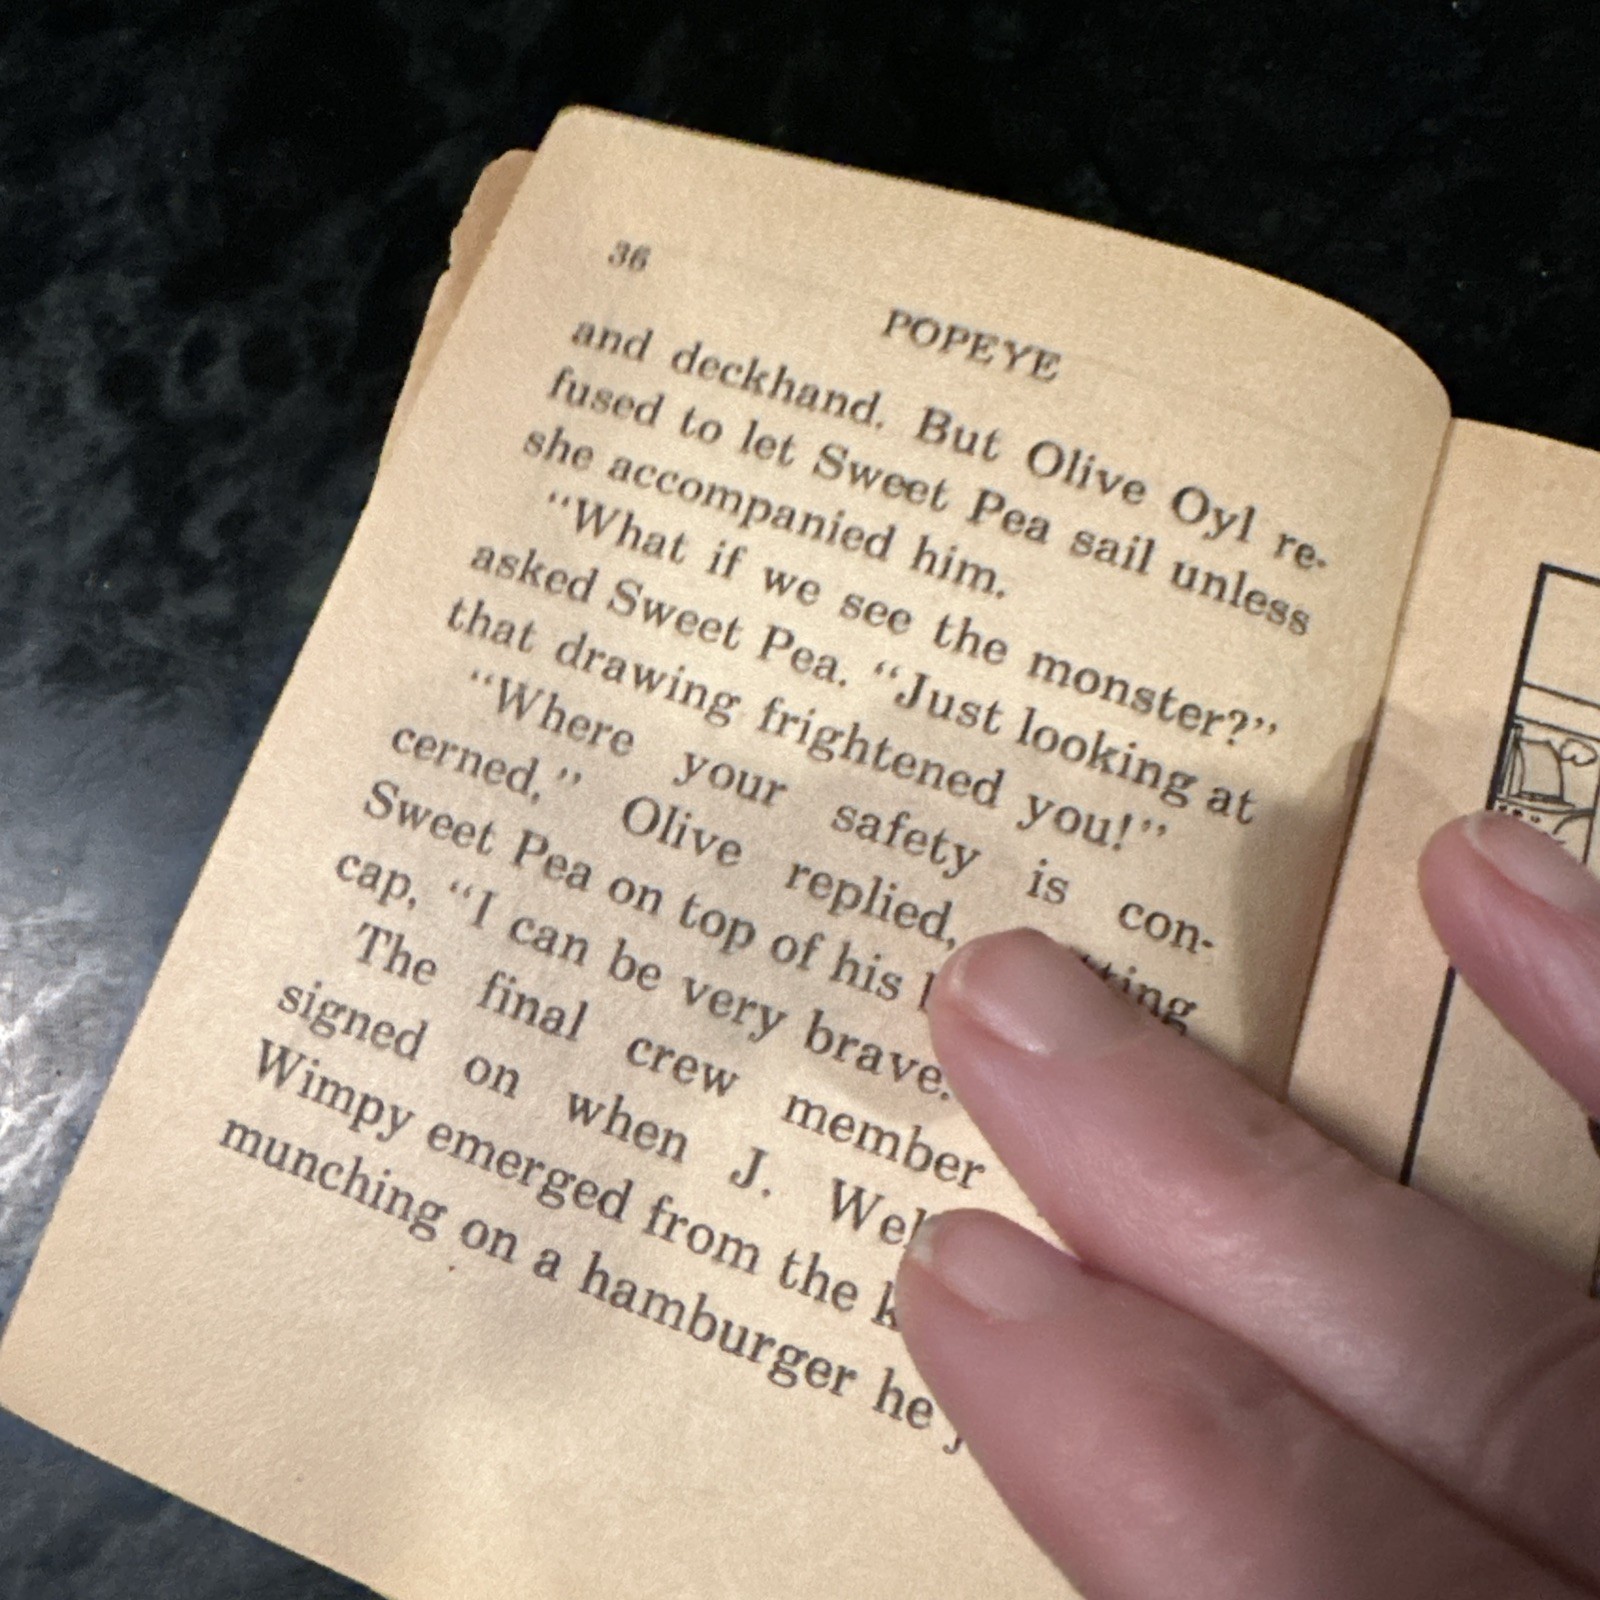 36
POPEYE
and deckhand. But Olive Oyl re-
fused to let Sweet Pea sail unless
she accompanied him.
“What if we see the monster?”
asked Sweet Pea. “Just looking at
that drawing frightened you!”
“Where your safety is con-
cerned,” Olive replied,
Sweet Pea on top of his
cap, “I can be very brave.
The final crew member
signed on when J.
Wimpy emerged from the
munching on a hamburger he